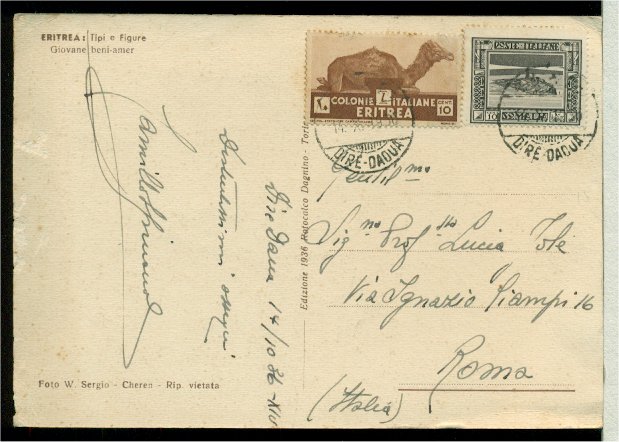 ERITREA: Tipi e Figure
Giovane beni-amer
COLONIE ITALIANE
ERITREA
CENT. 10
POSTE ITALIANE
10
DIRE-DAOUA
DIRE-DAOUA
Dire Daua 14/10 36-XIV
Distintissimi ossequi
Edizione 1936 Rotocalco Dagnino - Torino
Gentil.mo
Sig.na Prof.ssa Lucia
Via Ignazio Ciampi 16
Roma
(Italia)
Foto W. Sergio - Cheren - Rip. vietata